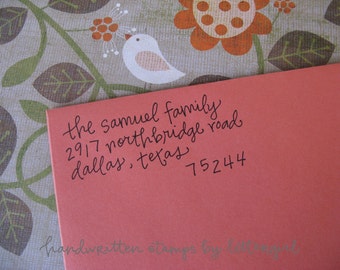 the samuel family
2917 northbridge road
dallas, texas
75244
handwritten stamps by lettergirl